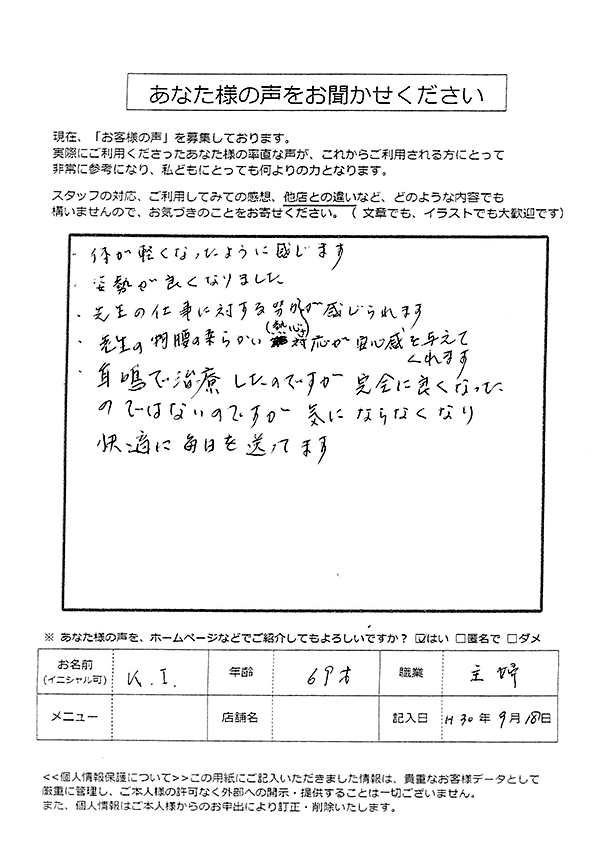 あなた様の声をお聞かせください
現在、「お客様の声」を募集しております。
実際にご利用くださったあなた様の率直な声が、これからご利用される方にとって
非常に参考になり、私どもにとっても何よりの力となります。
スタッフの対応、ご利用してみての感想、他店との違いなど、どのような内容でも
構いませんので、お気づきのことをお寄せください。（ 文章でも、イラストでも大歓迎です）
・体が軽くなったように感じます
・姿勢が良くなりました
・先生の仕事に対する努力が感じられます
・先生の物腰の柔らかい(熱心)対応が安心感を与えて
くれます
・耳鳴で治療したのですが 完全に良くなった
のではないのですが 気にならなくなり
快適に毎日を送ってます
※ あなた様の声を、ホームページなどでご紹介してもよろしいですか？ ☑はい □匿名で □ダメ
お名前 K.I. 年齢 69才 職業 主婦
(イニシャル可)
メニュー 店舗名 記入日 H30年9月18日
<<個人情報保護について>>この用紙にご記入いただきました情報は、貴重なお客様データとして
厳重に管理し、ご本人様の許可なく外部への開示・提供することは一切ございません。
また、個人情報はご本人様からのお申出により訂正・削除いたします。